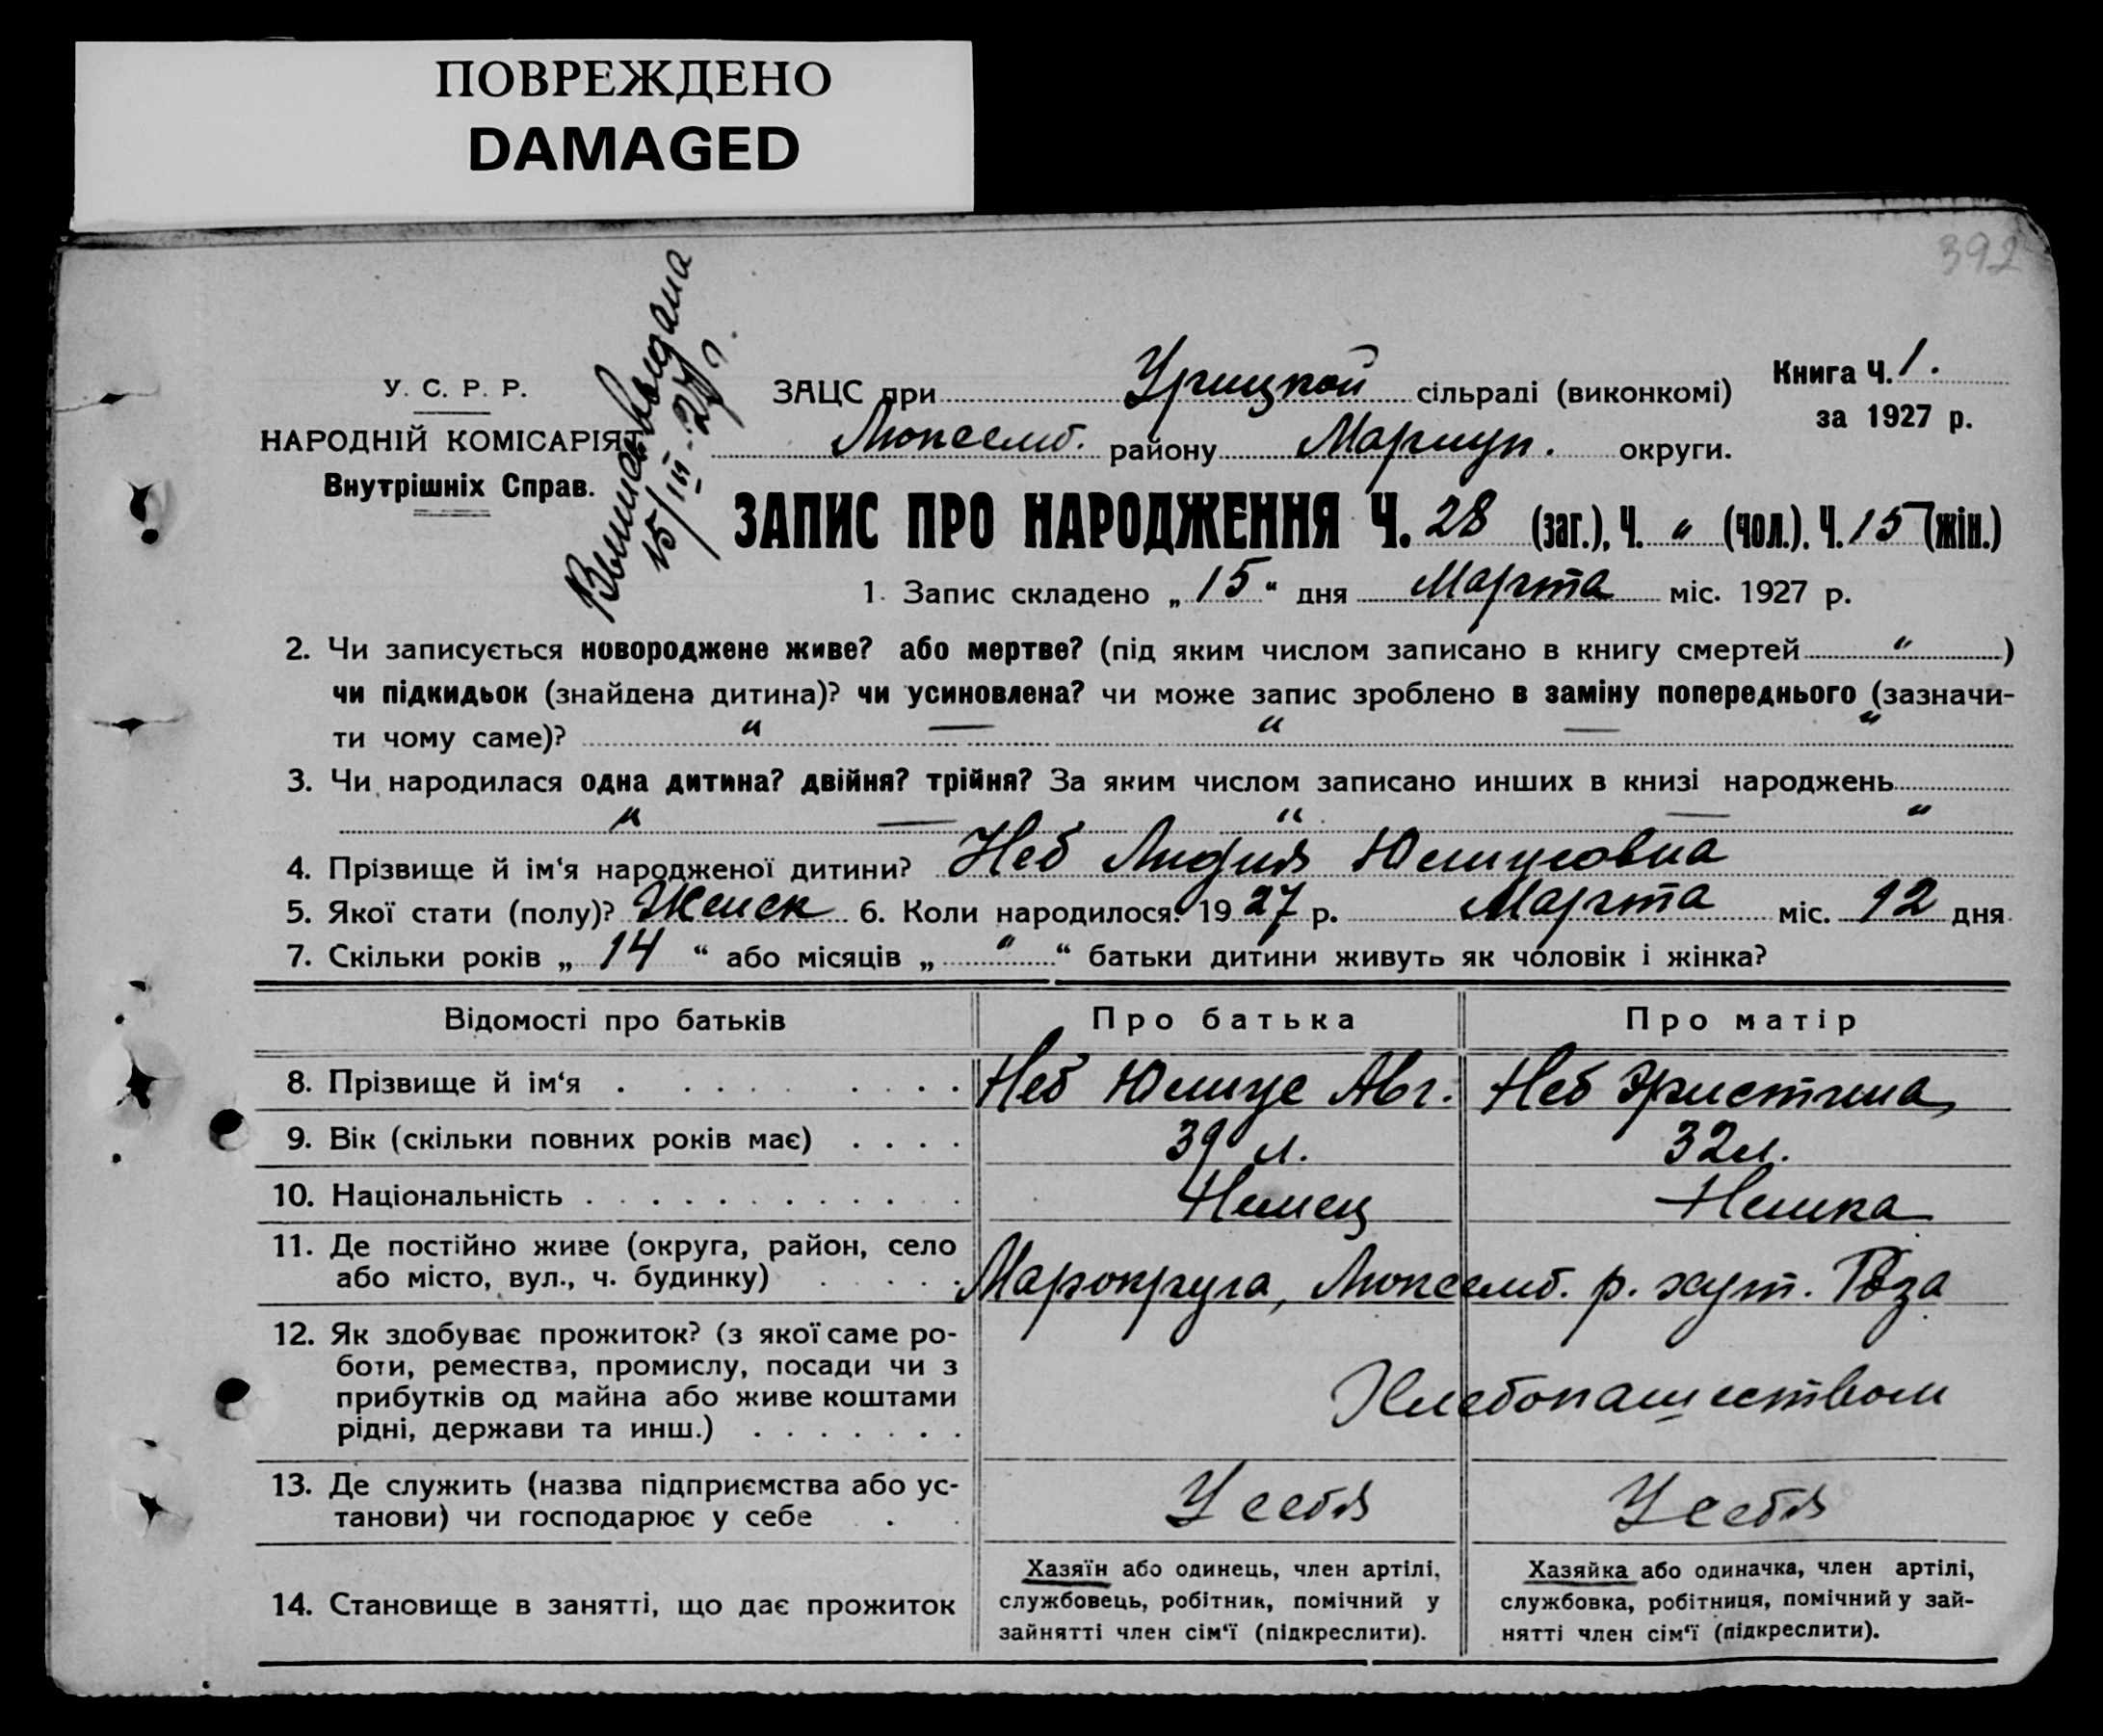 ПОВРЕЖДЕНО
DAMAGED
392
У. С. Р. Р.
НАРОДНІЙ КОМІСАРІЯТ
Внутрішніх Справ.
Выпись выдана
15/III-27 г.
ЗАЦС при Урицкой сільраді (виконкомі)
Люксемб. району Мариуп. округи.
Книга Ч. 1.
за 1927 р.
ЗАПИС ПРО НАРОДЖЕННЯ Ч. 28 (заг.), Ч. " (чол.). Ч. 15 (жін.)
1. Запис складено „ 15 “ дня Марта міс. 1927 р.
2. Чи записується новороджене живе? або мертве? (під яким числом записано в книгу смертей " )
чи підкидьок (знайдена дитина)? чи усиновлена? чи може запис зроблено в заміну попереднього (зазначи-
ти чому саме)? " — " — "
3. Чи народилася одна дитина? двійня? трійня? За яким числом записано инших в книзі народжень
" — " — "
4. Прізвище й ім‘я народженої дитини? Неб Лидия Юлиусовна
5. Якої стати (полу)? Женск 6. Коли народилося? 1927 р. Марта міс. 12 дня
7. Скільки років „ 14 “ або місяців „ " “ батьки дитини живуть як чоловік і жінка?
Відомості про батьків Про батька Про матір
8. Прізвище й ім‘я Неб Юлиус Авг. Неб Христина
9. Вік (скільки повних років має) 39 л. 32 л.
10. Національність Немец Немка
11. Де постійно живе (округа, район, село
або місто, вул., ч. будинку) Марокруга, Люксемб. р. хут. Роза
12. Як здобуває прожиток? (з якої саме ро-
боти, ремества, промислу, посади чи з
прибутків од майна або живе коштами
рідні, держави та инш.) Хлебопашеством
13. Де служить (назва підприємства або ус-
танови) чи господарює у себе У себя У себя
14. Становище в занятті, що дає прожиток
Хазяїн або одинець, член артілі,
службовець, робітник, помічний у
зайнятті член сім‘ї (підкреслити).
Хазяйка або одиначка, член артілі,
службовка, робітниця, помічний у зай-
нятті член сім‘ї (підкреслити).